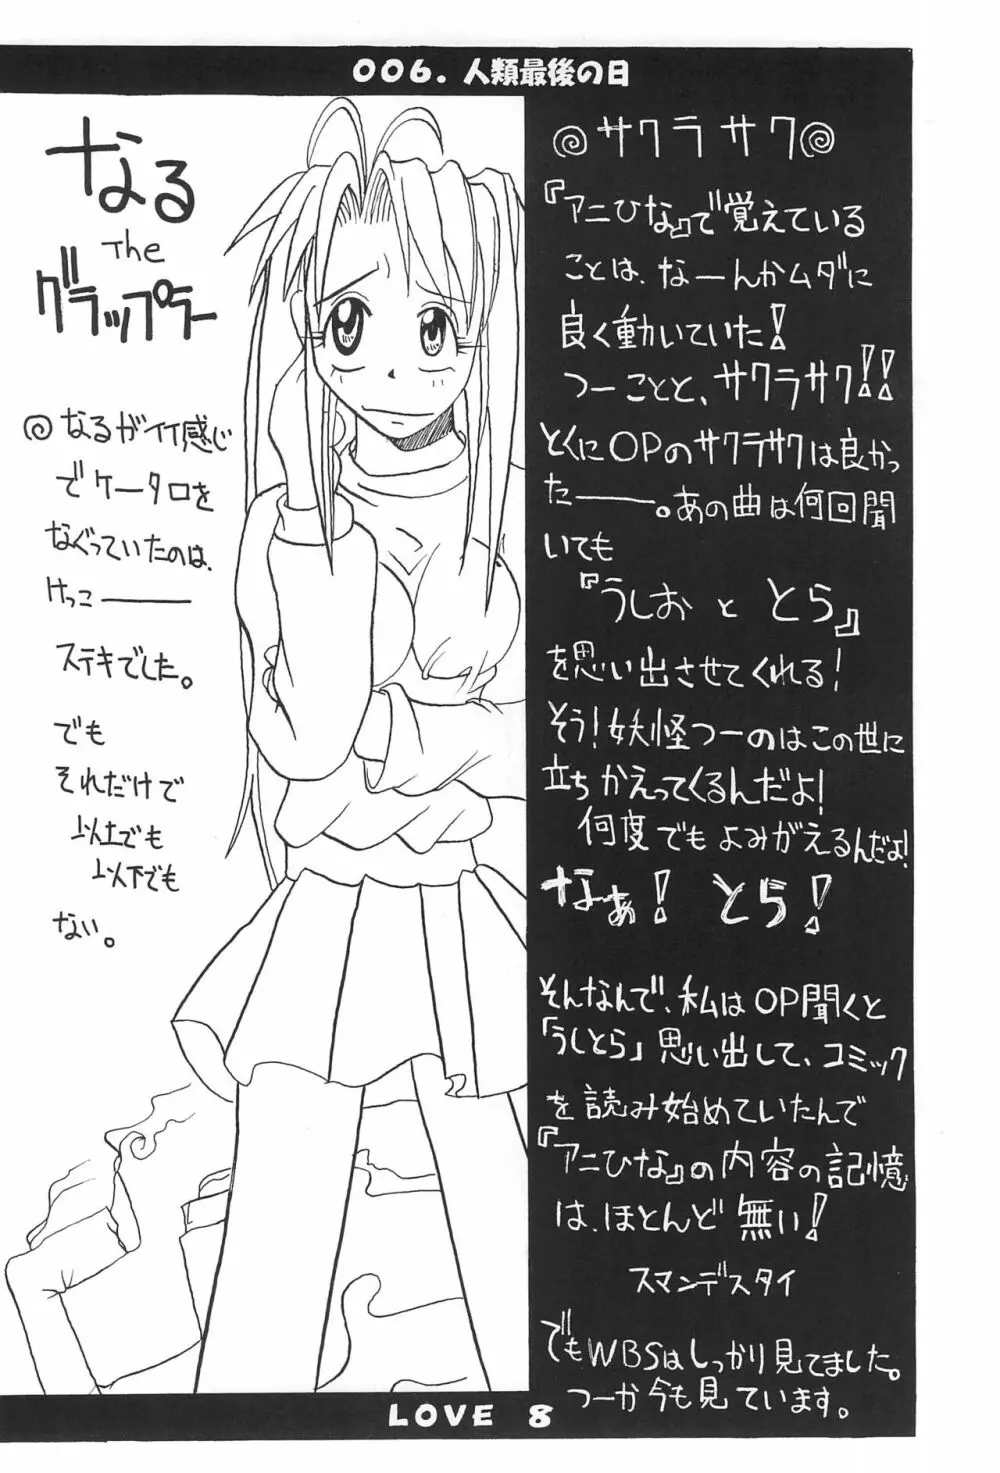 006. 人類最後の日
なる
The
グラップラー
◎なるがイイ感じ
でケータロを
なぐっていたのは、
けっこ――
ステキでした。
でも
それだけで
以上でも
以下でも
ない。
◎サクラサク◎
『アニひな』で覚えている
ことは、なーんかムダに
良く動いていた!
つーことと、サクラサク!!
とくにOPのサクラサクは良かっ
た――。あの曲は何回聞
いても
『うしおととら』
を思い出させてくれる!
そう!妖怪つーのはこの世に
立ちかえってくるんだよ!
何度でもよみがえるんだよ!
なぁ! とら!
そんなんで、私はOP聞くと
「うしとら」思い出して、コミック
を読み始めていたんで
『アニひな』の内容の記憶
は、ほとんど無い!
スマンデスタイ
でもWBSはしっかり見てました。
つーか今も見ています。
LOVE 8